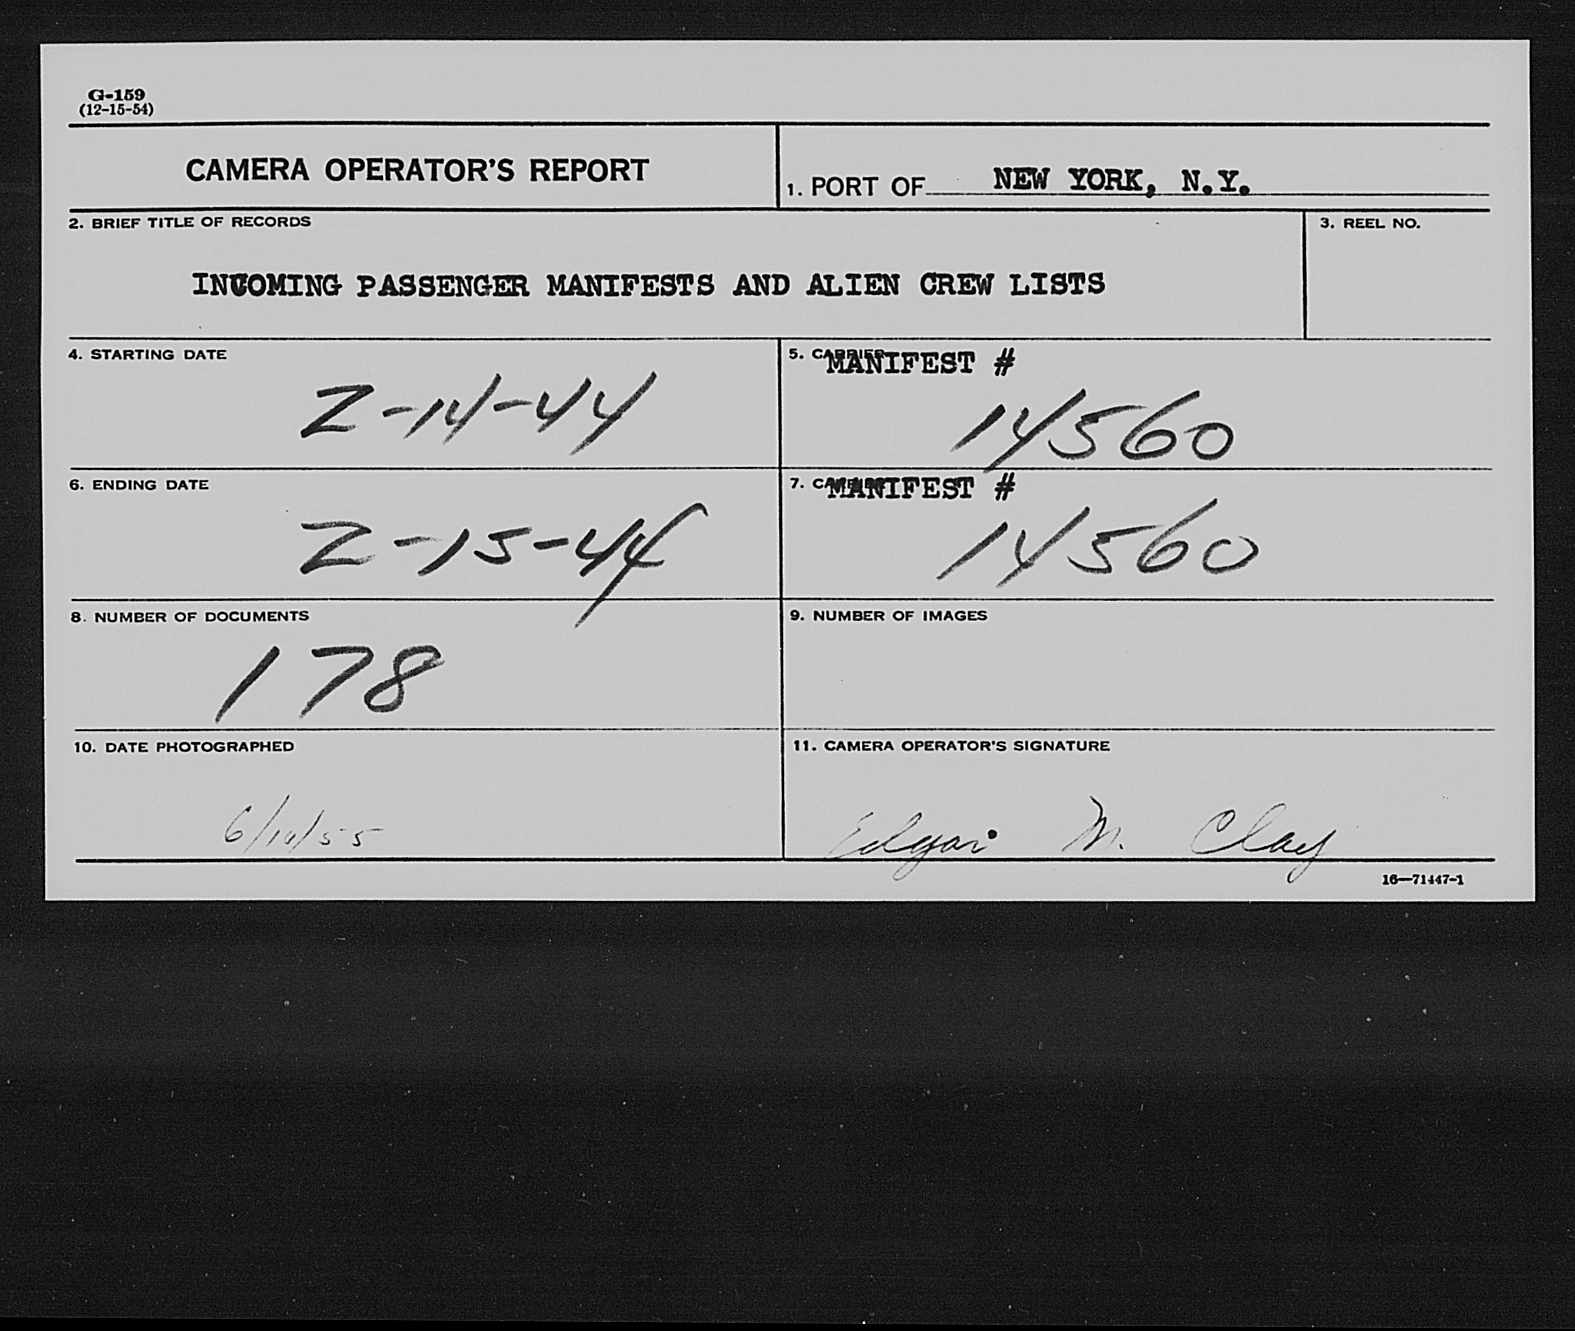 G-159
(12-15-54)
CAMERA OPERATOR'S REPORT
1. PORT OF NEW YORK, N.Y.
2. BRIEF TITLE OF RECORDS
INCOMING PASSENGER MANIFESTS AND ALIEN CREW LISTS
3. REEL NO.
4. STARTING DATE
2-14-44
5. CARRIER MANIFEST #
14560
6. ENDING DATE
2-15-44
7. CARRIER MANIFEST #
14560
8. NUMBER OF DOCUMENTS
178
9. NUMBER OF IMAGES
10. DATE PHOTOGRAPHED
6/14/55
11. CAMERA OPERATOR'S SIGNATURE
Edgar M. Clay
16—71447-1